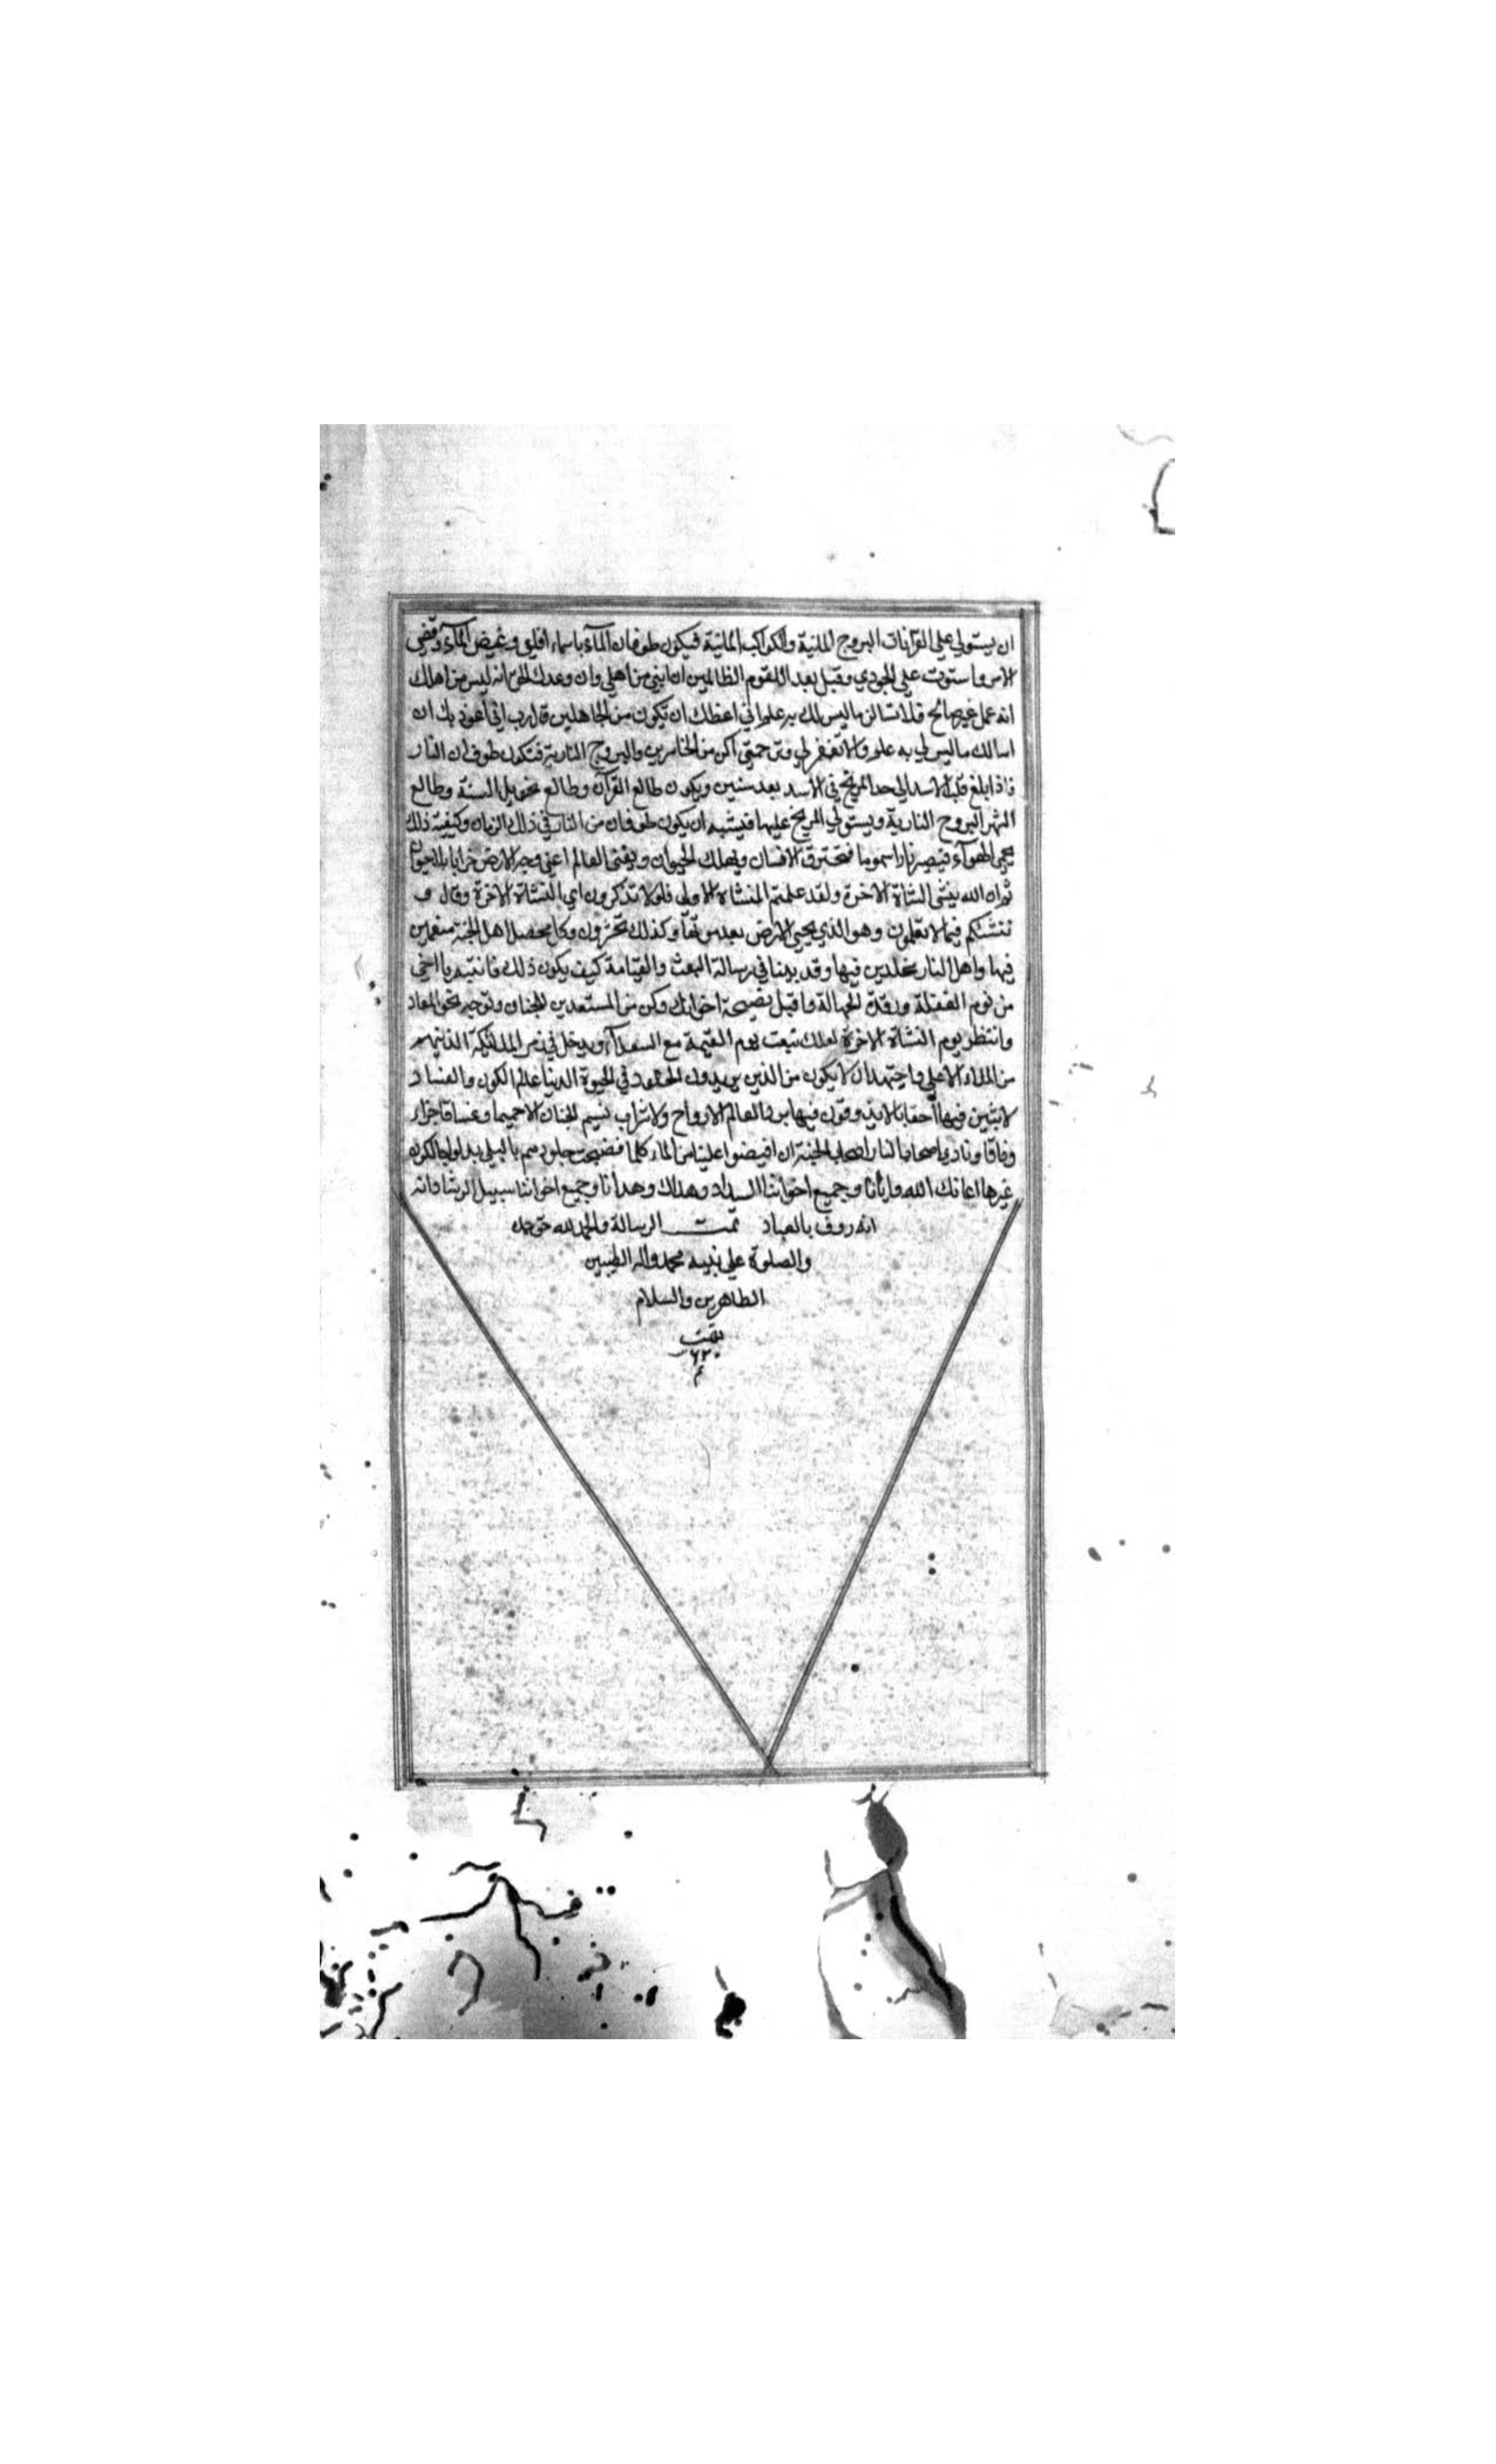 ان يستولي علي القرآنات البروج المائية والكواكب المائية فيكون طوفان المآء ياسماء اقلعي وغيض المآء وقضي
الامر واستوت علي الجودي وقيل بعدا للقوم الظالمين ان ابني من اهلي وان وعدك الحق انه ليس من اهلك
انه عمل غير صالح فلا تسالن ماليس لك به علم اني اعظك ان تكون من الجاهلين قال رب اني اعوذ بك ان
اسالك ماليس لي به علم والا تغفر لي وترحمني اكن من الخاسرين والبروج النارية فتكون طوفان النار
فاذا بلغ قلب الاسد الي حد المريخ في الاسد بعد سنين ويكون طالع القرآن وطالع تحويل السنة وطالع
الشهر البروج النارية ويستولي المريخ عليها فيشبه ان يكون طوفان من النار في ذلك الزمان وكيفية ذلك
يحمي الهوآء فيصير نارا سموما فتحترق الانسان ويهلك الحيوان ويفني العالم اعني وجه الارض خرابا بلاحيوان
ثم ان الله ينشي النشاة الاخرة ولقد علمتم المنشاة الاولي فلولا تذكرون اي النشاة الاخرة وقال و
ننشئكم فيما لا تعلمون وهو الذي يحيي الارض بعد موتها وكذلك تخرجون وكل يحصل اهل الجنة منعمين
فيها واهل النار مخلدين فيها وقد بينا في رسالة البعث والقيامة كيف يكون ذلك فانتبه يا اخي
من نوم الغفلة ورقدة الجهالة واقبل نصيحة اخوانك وكن من المستعدين للجنان وتوجه نحو المعاد
وانتظر يوم النشاة الاخرة لعلك تبعث يوم القيمة مع السعدآء ويدخل في زمر الملئيكة الذينهم
من الملاء الاعلي واجتهد ان لا يكون من الذين يريدون الخلود في الحيوة الدينا عالم الكون والفساد
لابثين فيها احقابا لا يذوقون فيها بردا لعالم الارواح ولا شراب نسيم الجنان الا حميما وغساقا جزاء
وفاقا ونادي اصحاب النار اصحاب الجنة ان افيضوا علينا من الماء كلما نضجت جلودهم بالبلي بدلوا بالكون
غيرها اعانك الله وايانا وجميع اخواننا السداد وهداك وهدانا وجميع اخواننا سبيل الرشاد انه
انه روف بالعباد تمت الرسالة والحمد لله حق حمده
والصلوة علي نبيه محمد واله الطيبين
الطاهرين والسلام
تمت
م